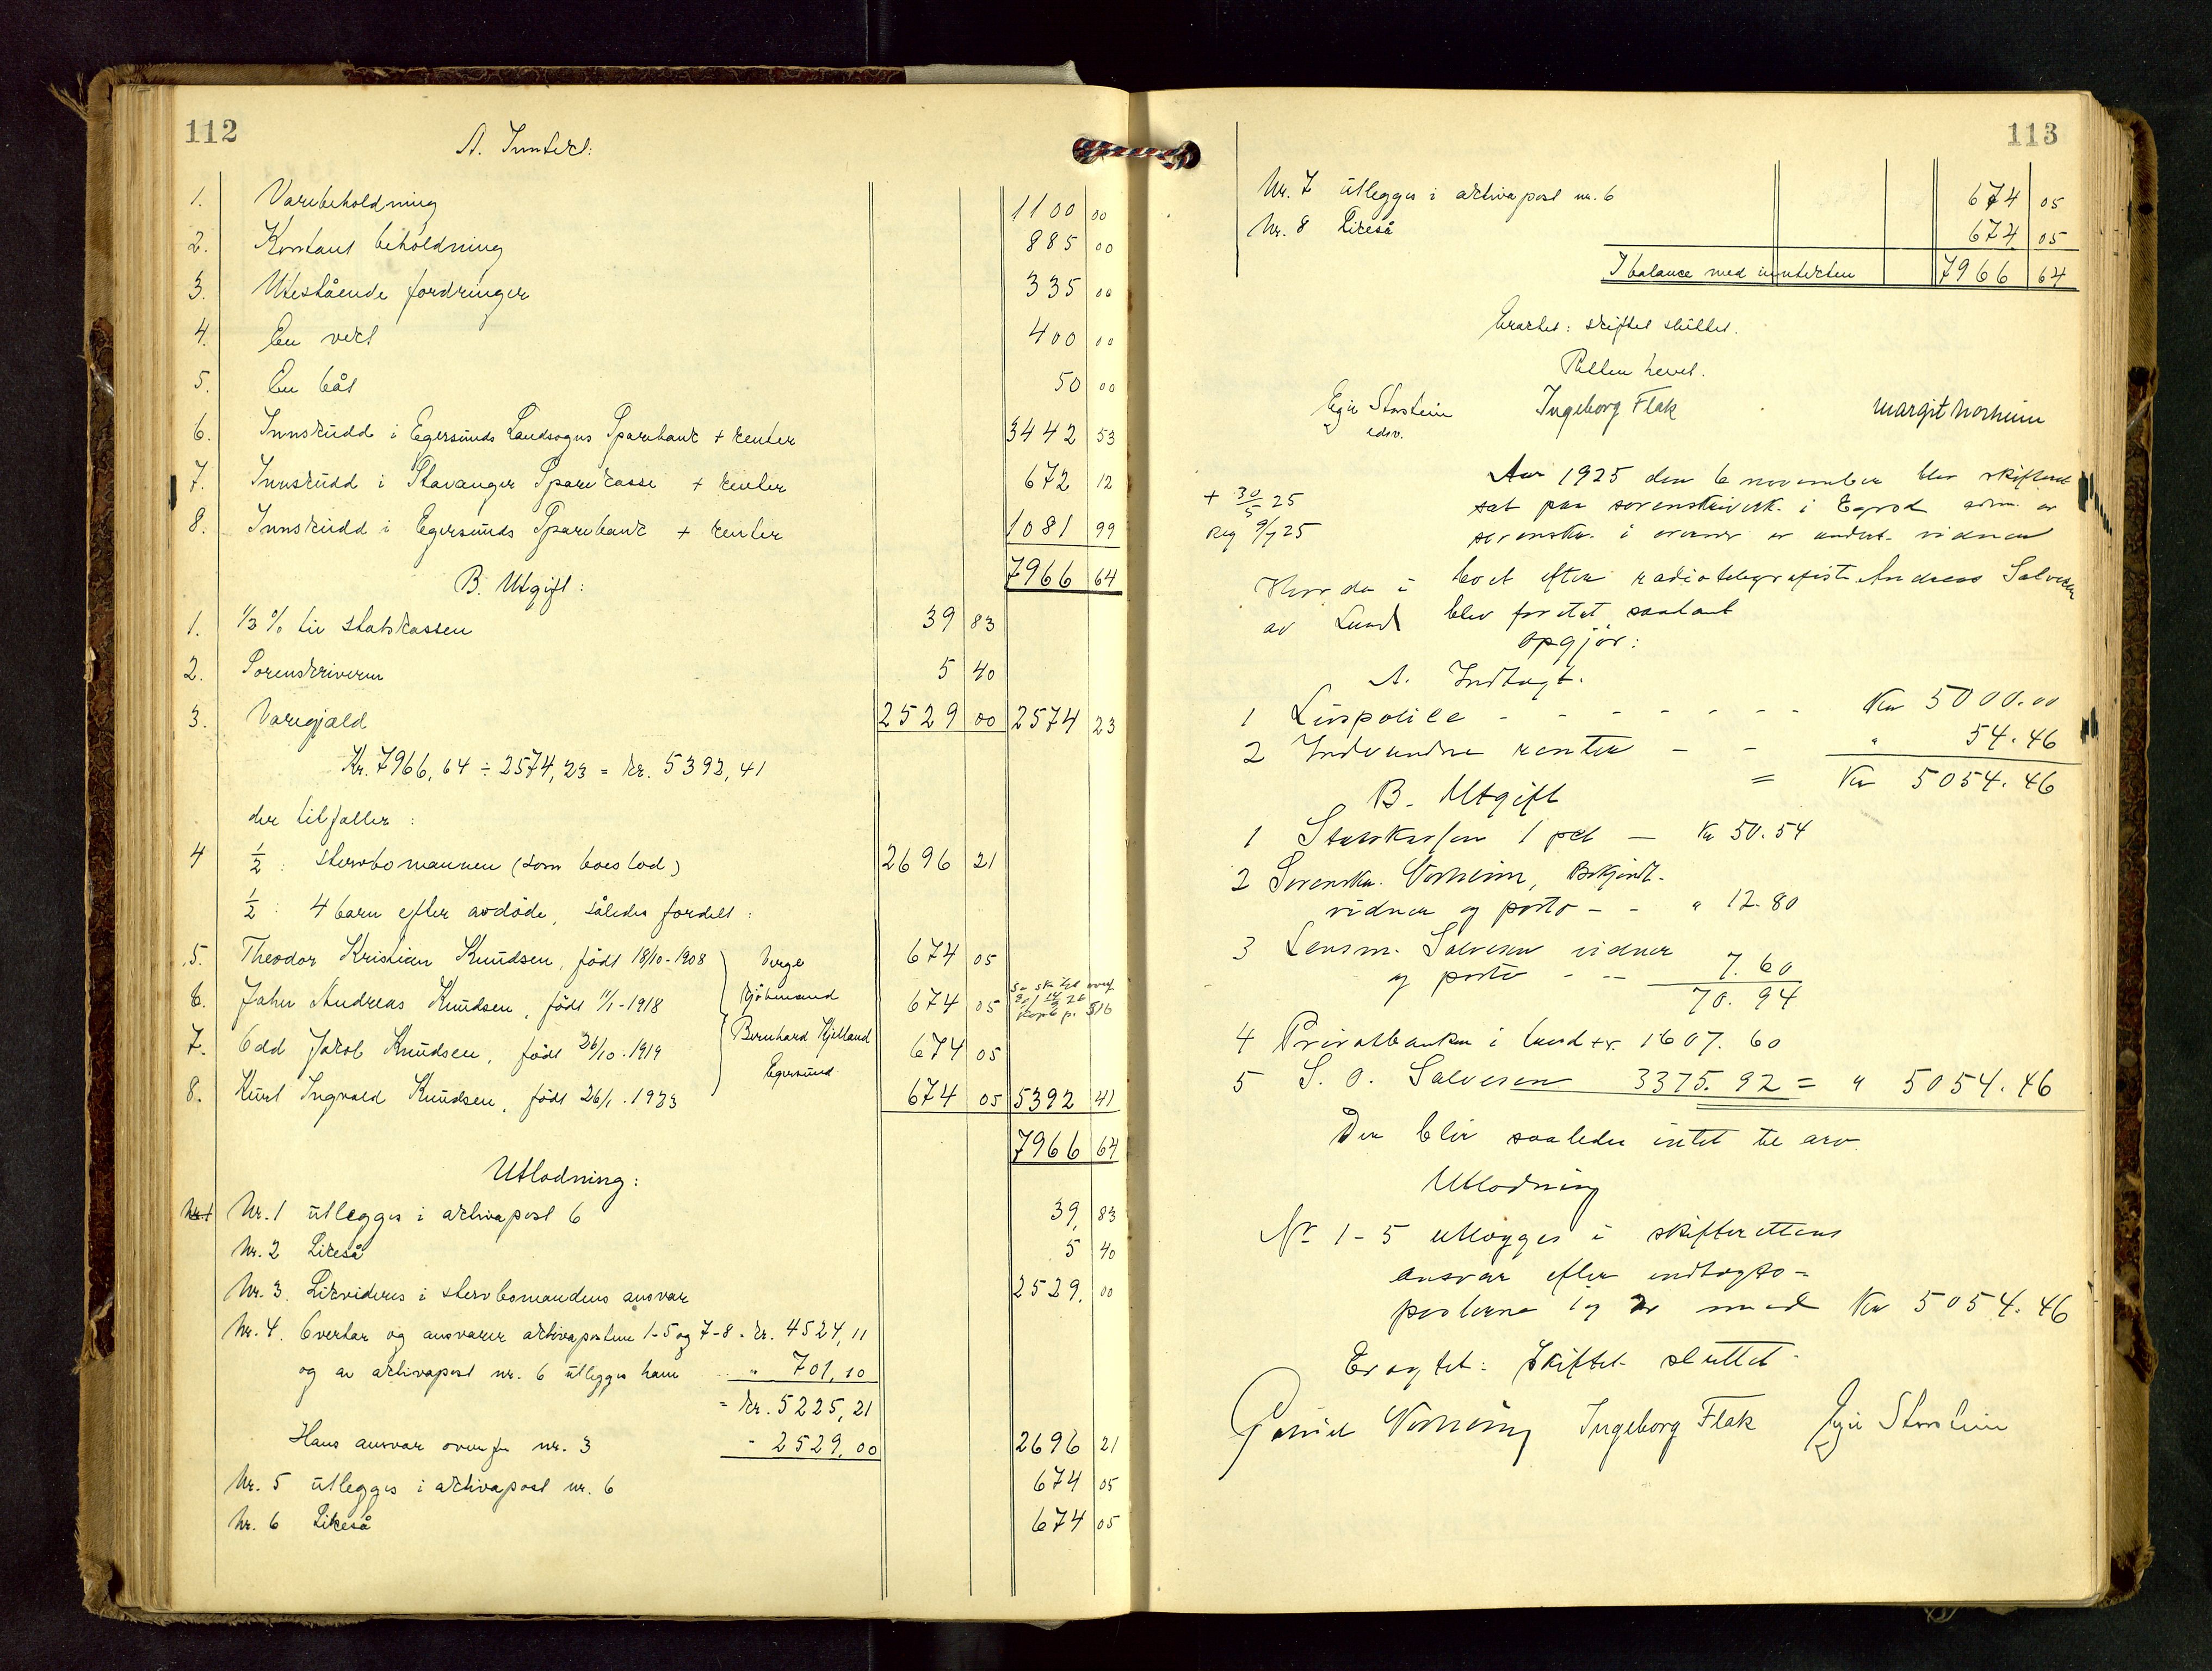 112
A. Inntekt:
1. Varebeholdning 1100 00
2. Kontant beholdning 885 00
3. Utestående fordringer 335 00
4. En vekt 400 00
5. En båt 50 00
6. Innskudd i Egersunds Landsogns Sparebank + renter 3442 53
7. Innskudd i Stavanger Sparekasse + renter 672 12
8. Innskudd i Egersunds Sparebank + renter 1081 99
7966 64
B. Utgift:
1. 1/2 % til statskassen 39 83
2. Sorenskriveren 5 40
3. Varegjæld 2529 00 2574 23
Kr. 7966,64 ÷ 2574,23 = kr. 5392,41
der tilfaller:
4 1/2: stervbomannen (som boeslod) 2696 21
1/2: 4 barn efter avdöde, således fordelt:
5. Theodor Kristian Knudsen, født 18/10-1908 674 05
Verge
6. Johu Andreas Knudsen, født 11/1-1918 674 05
kjöbmand
7. Odd Jakob Knudsen, født 26/10.1919 674 05
Bernhard Kjelland
Egersund
8. Kurt Ingvald Knudsen, født 26/1.1923 674 05 5392 41
7966 64
Utlodning:
Nr. 1 Nr. 1 utlegges i aktivapost 6 39, 83
Nr. 2 Likeså 5 40
Nr. 3. Likvideres i stervbomandens ansvar 2529, 00
Nr. 4. Overtar og ansvarer aktivapostene 1-5 og 7-8 - kr. 4524,11
og av aktivapost nr. 6 utlegges ham " 701,10
= kr. 5225,21
Hans ansvar ovenfor nr. 3 - 2529,00 2696 21
Nr. 5 utlegges i aktivapost nr. 6 674 05
Nr. 6 Likeså 674 05
113
Nr. 7 utlegges i aktivapost nr. 6 674 05
Nr. 8 Likeså 674 05
I balance med inntekten 7966 64
Eragtet: skiftet sluttet.
Retten hevet.
Egil Storstein Ingeborg Flak Margit Norheim
edsv.
Aar 1925 den 6 november blev skifteret
+ 30/5 25 sat paa sorenskriverk. i Egersd adm. av
Reg 9/7 25 sorenskr. i overvær av undert. vidner
Hvor da i boet efter radiotelegrafist Andreas Salvesen
av Lund blev foretat saadant
opgjör:
A. Indtægt.
1 Livspolice - - - - - - - Kr 5000.00
2 Indvundne renter - - " 54.46
= Kr 5054.46
B. Utgift
1 Statskassen 1 pct — Kr 50.54
2 Sorenskr. Norheim, Bekjendt.
vidner og porto - - " 12.80
3 Lensm. Salvesen vidner
og porto - -- 7.60
70.94
4 Privatbanken i Lund kr. 1607.60
5 S. O. Salvesen 3375.92 = " 5054.46
Der blir saaledes intet til arv.
Utlodning
No 1-5 utlægges i skifterettens
ansvar efter indtægts-
posterne 1 og 2 med Kr 5054.46
Eragtet: Skiftet sluttet.
Norheim Ingeborg Flak Egil Storstein